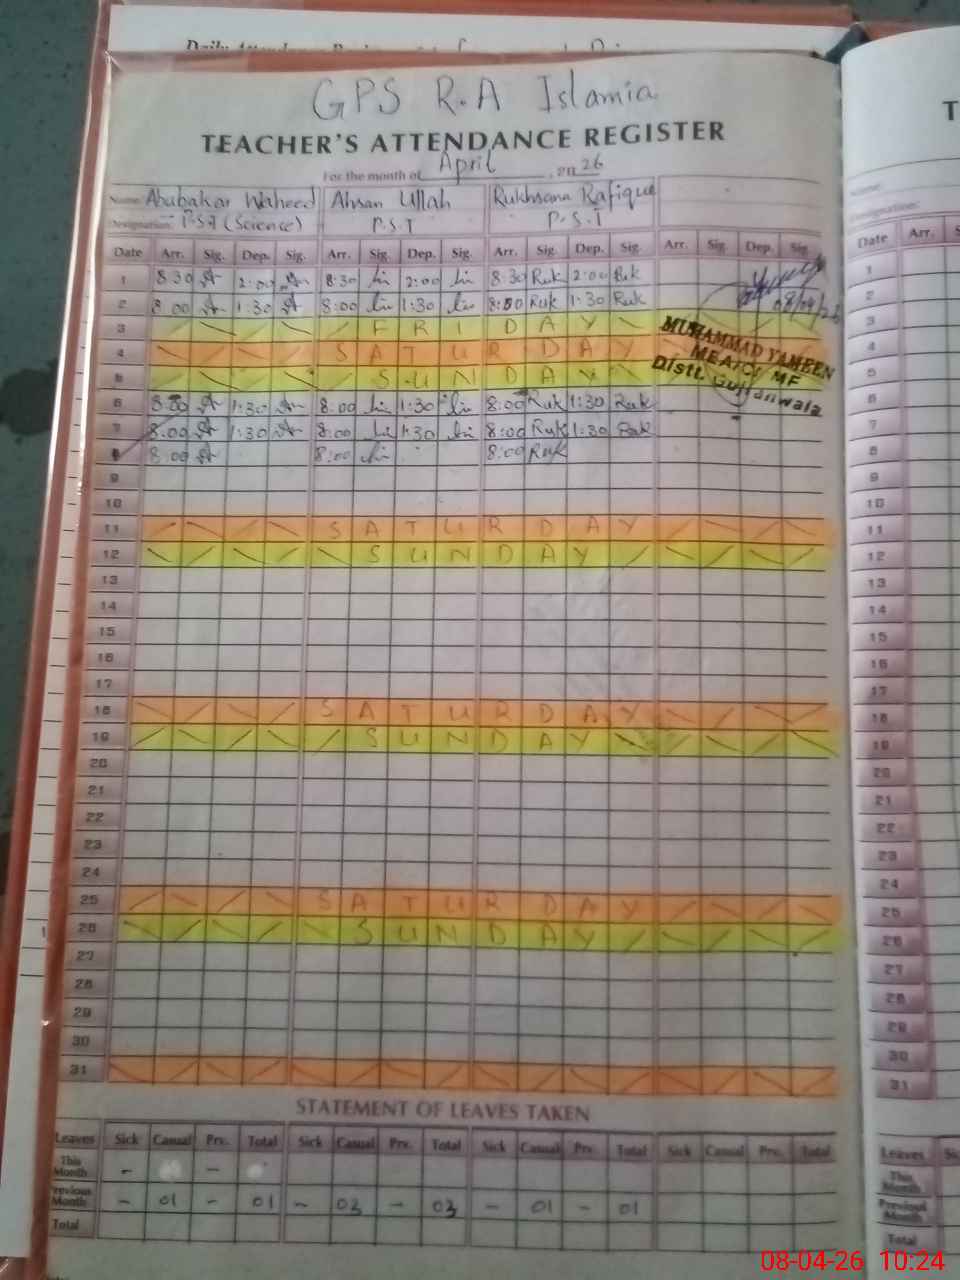 GPS R.A Islamia
TEACHER'S ATTENDANCE REGISTER
For the month of April, 2026
Name: Abubakar Waheed Ahsan Ullah Rukhsana Rafique
Designation: P.S.T (Science) P.S.T P.S.T
Date Arr. Sig. Dep. Sig. Arr. Sig. Dep. Sig. Arr. Sig. Dep. Sig. Arr. Sig. Dep. Sig.
1 8:30 2:00 8:30 2:00 8:30 Ruk 2:00 Ruk
2 8:00 1:30 8:00 1:30 8:00 Ruk 1:30 Ruk 08/04/26
3 FRIDAY
4 SATURDAY
5 SUNDAY
MUHAMMAD YAMEEN
MEA/CI MF
Distt. Gujranwala
6 8:00 1:30 8:00 1:30 8:00 Ruk 1:30 Ruk
7 8:00 1:30 8:00 1:30 8:00 Ruk 1:30 Ruk
8 8:00 8:00 8:00 Ruk
9
10
11 SATURDAY
12 SUNDAY
13
14
15
16
17
18 SATURDAY
19 SUNDAY
20
21
22
23
24
25 SATURDAY
26 SUNDAY
27
28
29
30
31
STATEMENT OF LEAVES TAKEN
Leaves Sick Casual Prv. Total Sick Casual Prv. Total Sick Casual Prv. Total Sick Casual Prv. Total
This Month - -
Previous Month - 01 - 01 - 03 - 03 - 01 - 01
Total
Date Arr.
1
2
3
4
5
6
7
8
9
10
11
12
13
14
15
16
17
18
19
20
21
22
23
24
25
26
27
28
29
30
31
Leaves
This Month
Previous Month
Total
08-04-26 10:24